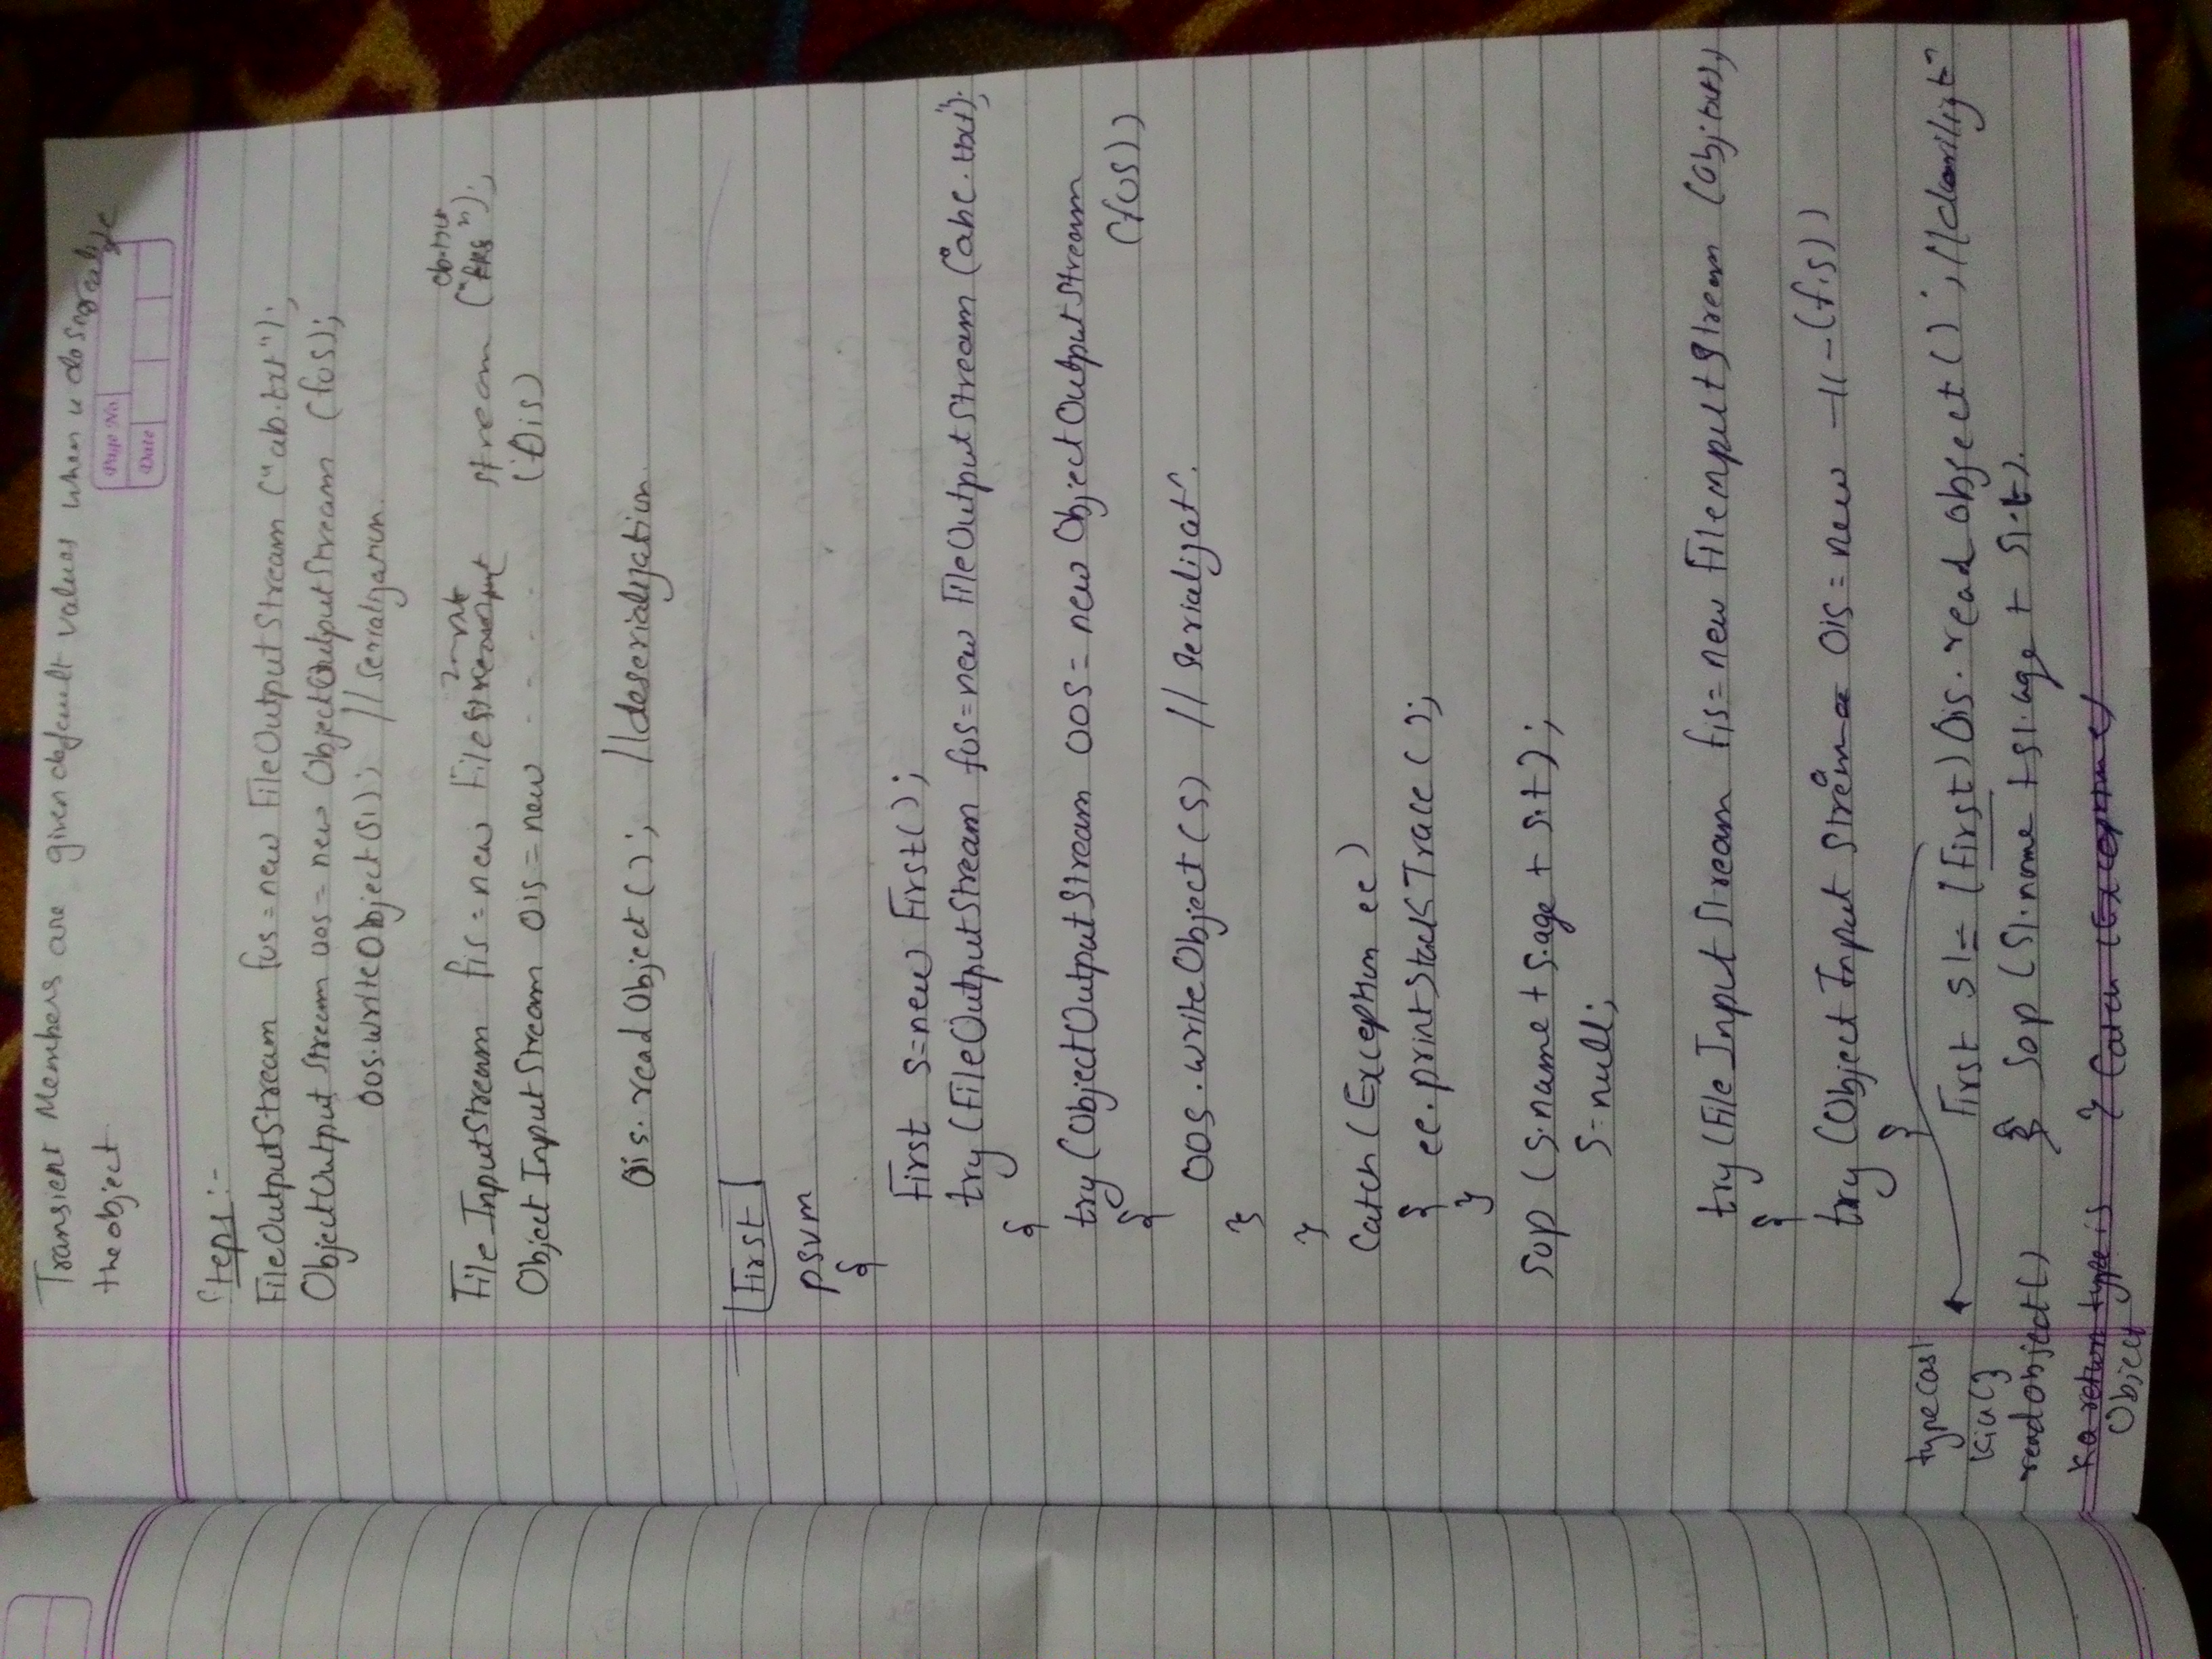 Transient Members are given default values when u deserealize
the object
Page No.
Date
Steps:-
FileOutputStream fos = new FileOutputStream ("ab.txt");
ObjectOutput Stream oos = new ObjectOutputStream (fos);
oos.writeObject(S1); // Serialization.
File InputStream fis = new File Input stream ("ab.txt");
Object InputStream Ois = new - - - - (Ois)
Ois. read Object ( ); //deserialization.
First
psvm
{
First s=new First( );
try (FileOutputStream fos=new FileOutputStream ("abc.txt");
{
try (ObjectOutputStream oos = new ObjectOutputStream
(fos))
{
oos.writeObject (s) // Serializat^n.
}
}
Catch (Exception ee)
{ ee.printStackTrace ( );
}
Sop (s.name + s.age + s.t);
S=null;
try (File Input Stream fis= new FileInputStream (obj.txt))
{
try (Object Input Stream Ois = new -11- (fis))
{
First S1= (First) Ois. read object ( ) ; //
} Sop (S1.name + s1.age + S1.t).
} Catch (Exception e)
typecast
kiu {}
readobject ( )
ka return type is
Object